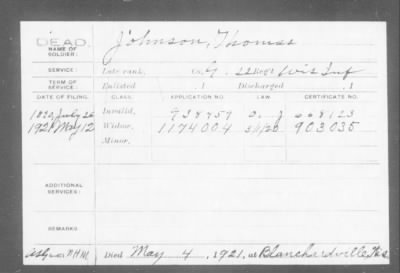 DEAD.
NAME OF SOLDIER: Johnson, Thomas
SERVICE: Late rank, Co. G. 22 Reg't Wis Inf
TERM OF SERVICE: Enlisted , 1 Discharged , 1
DATE OF FILING. CLASS. APPLICATION NO. LAW. CERTIFICATE NO.
1890, July 26 Invalid, 938757 J 668123
1921 May 12 Widow, 1174004 903035
Minor,
ADDITIONAL SERVICES:
REMARKS:
Died May 4, 1921, at Blanchardville, Wis